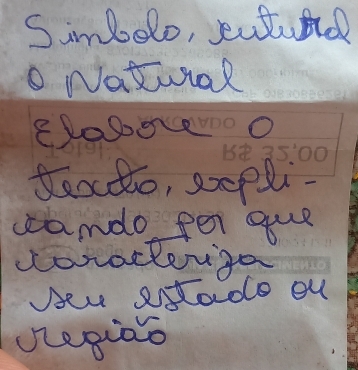 Simbolo, cultural
O Natural
Elabore o
texto, expli-
cando por que
caracteriza
seu estado ou
região
APROVADO
Total:
R$ 32,00